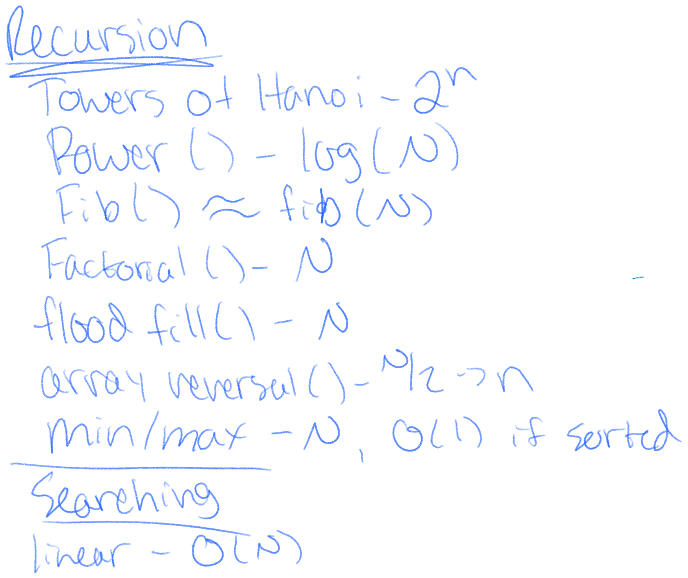 Recursion
Towers of Hanoi - 2^n
Power () - log(N)
Fib() ≈ fib(N)
Factorial () - N
flood fill() - N
array reversal() - N/2 -> n
min/max - N, O(1) if sorted
Searching
linear - O(N)